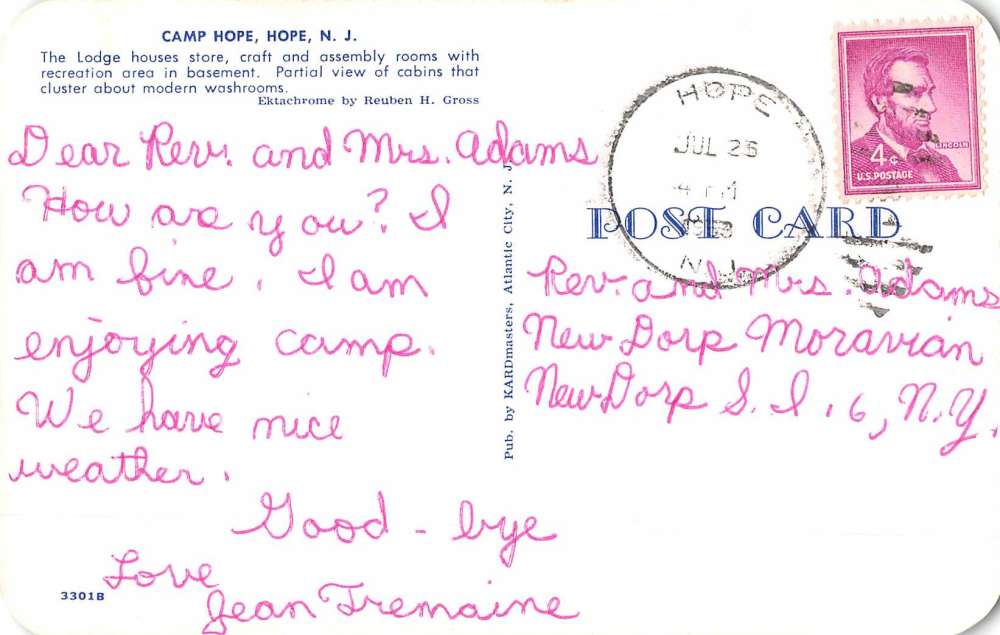 CAMP HOPE, HOPE, N. J.
The Lodge houses store, craft and assembly rooms with
recreation area in basement. Partial view of cabins that
cluster about modern washrooms.
Ektachrome by Reuben H. Gross
Dear Rev. and Mrs. Adams
How are you? I
am fine. I am
enjoying camp.
We have nice
weather.
Good - bye
Love
Jean Tremaine
3301B
Pub. by KARDmasters, Atlantic City, N. J.
HOPE
JUL 25
N.J.
LINCOLN
4¢
U.S. POSTAGE
POST CARD
Rev. and Mrs. Adams
New Dorp Moravian
New Dorp S. I. 6, N.Y.